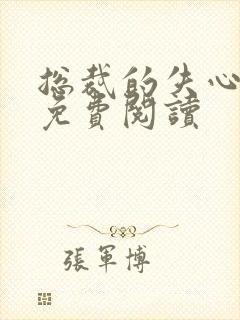 总裁的失心
免費閱讀
張軍博